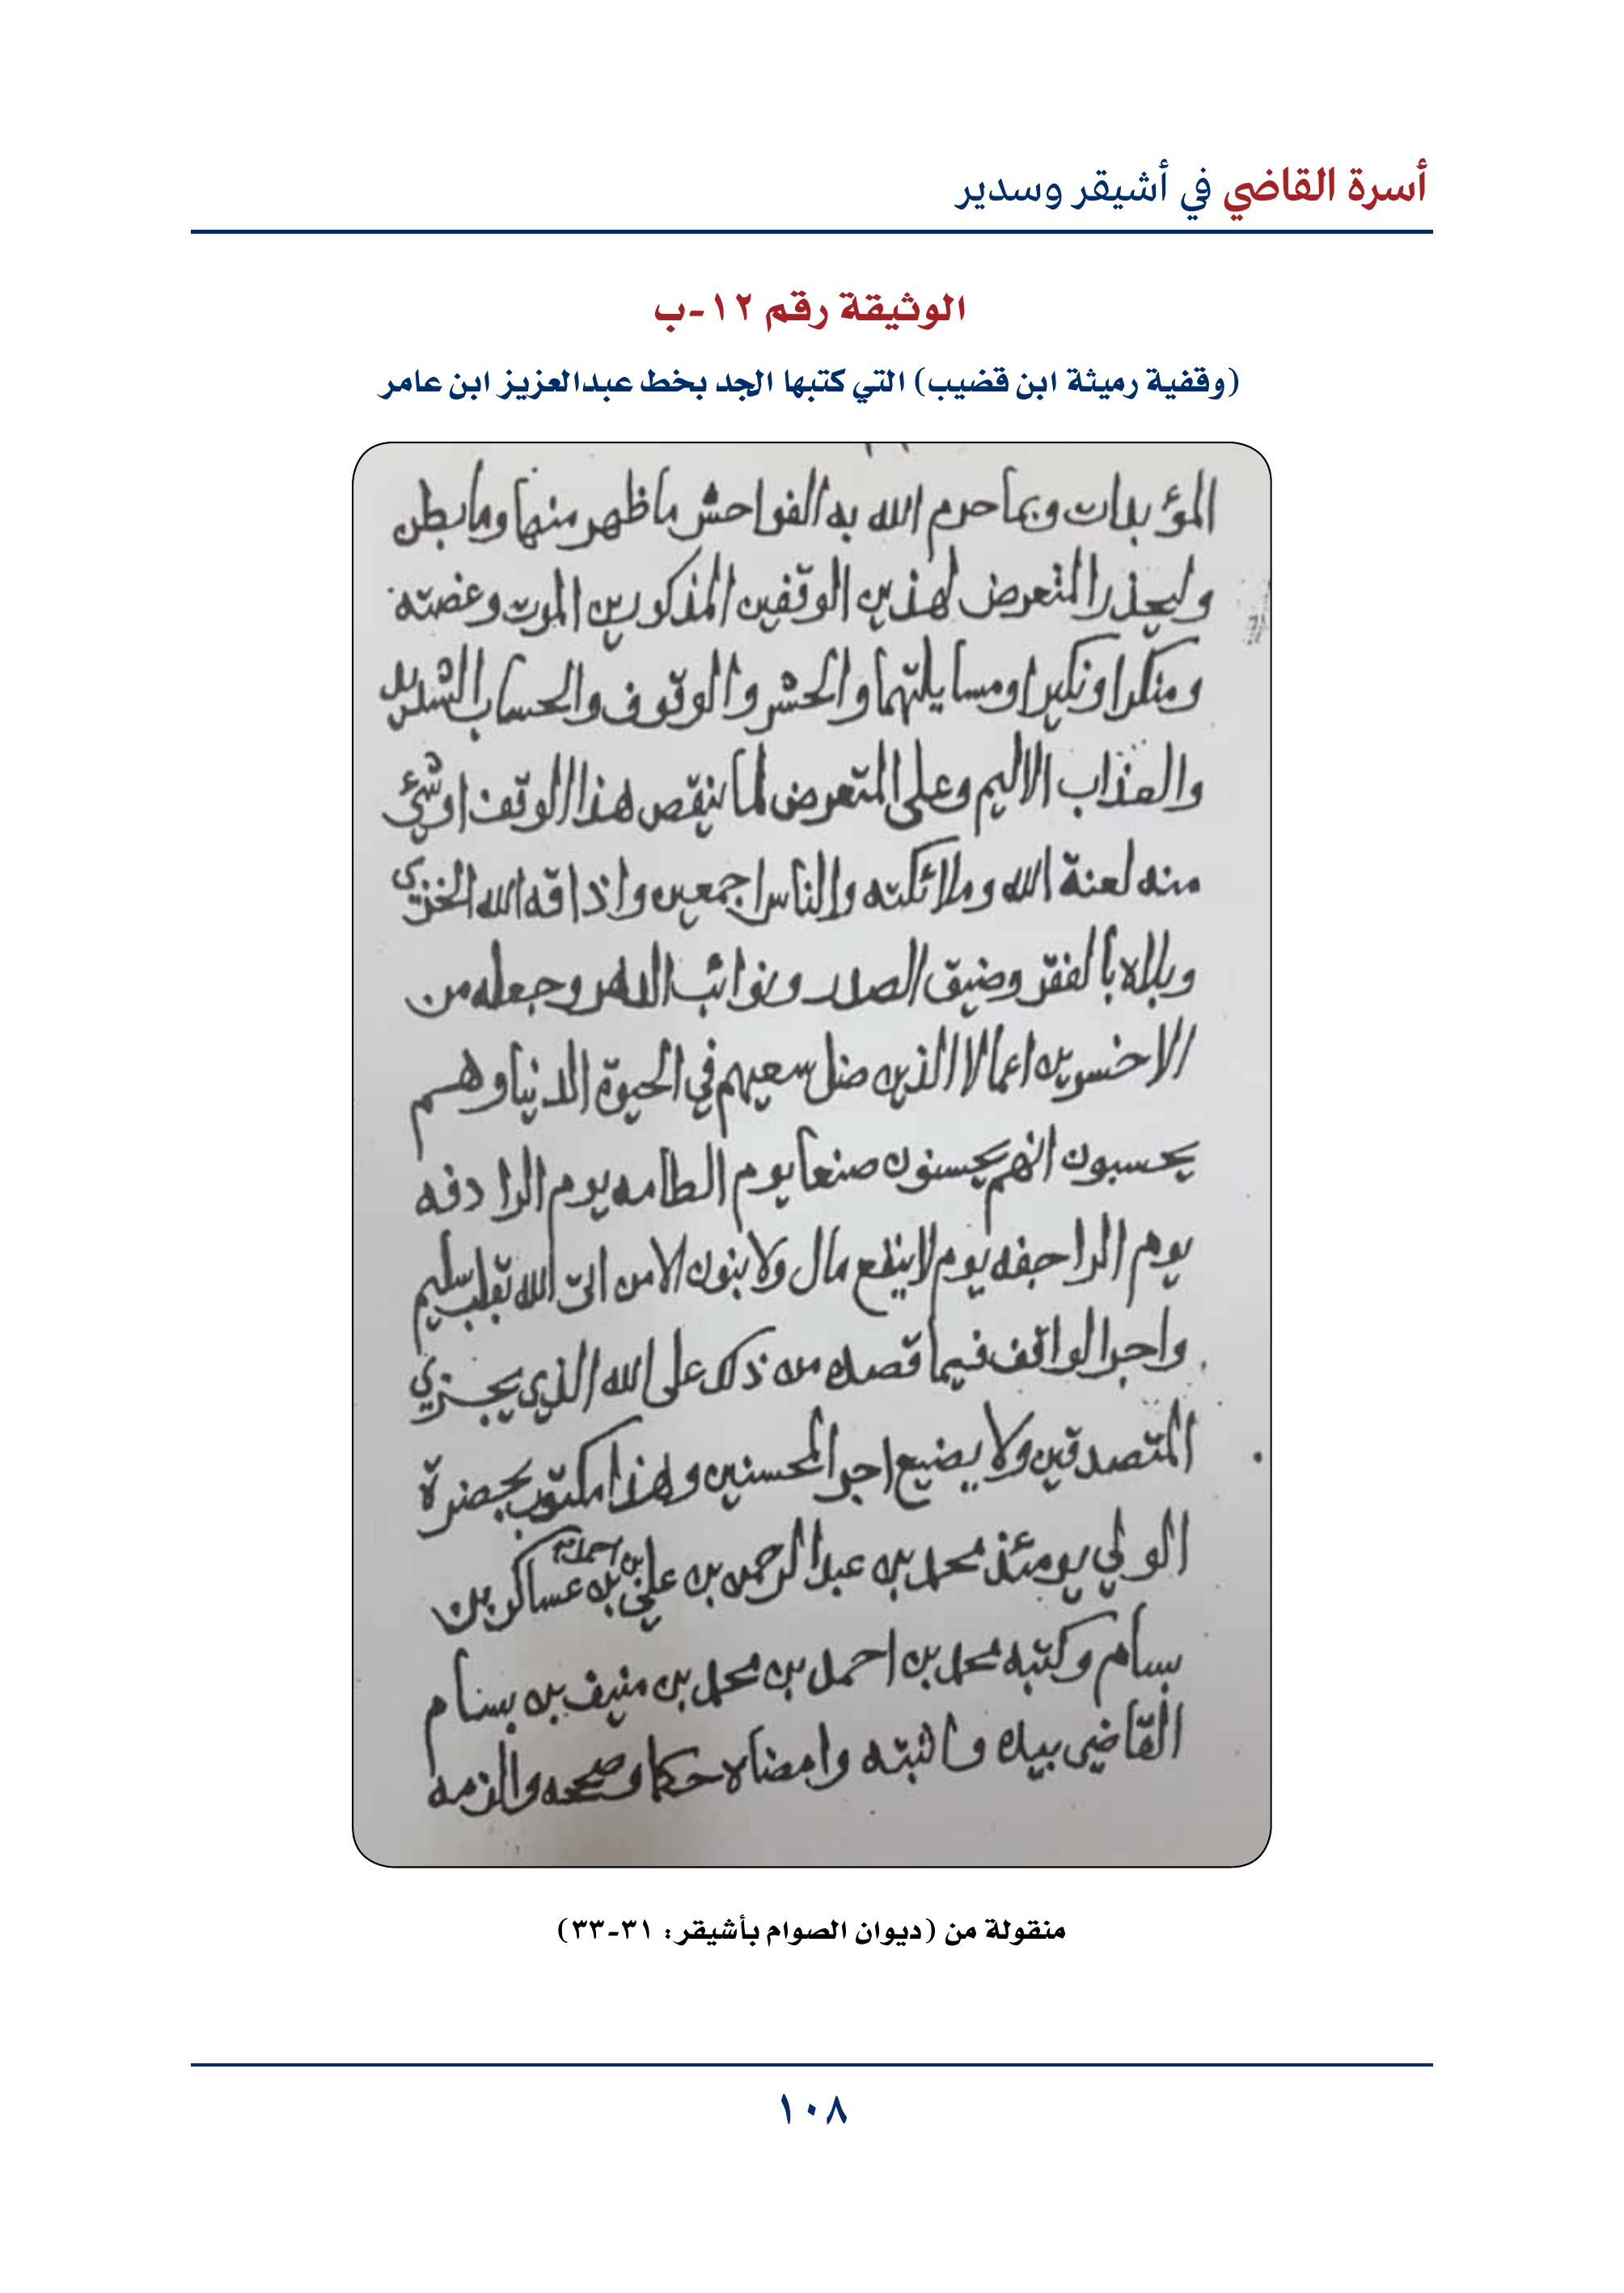 أسرة القاضي في أشيقر وسدير
الوثيقة رقم ١٢-ب
(وقفية رميثة ابن قضيب) التي كتبها الجد بخط عبدالعزيز ابن عامر
المؤبدات وبما حرم الله به الفواحش ما ظهر منها وما بطن
وليحذر المتعرض لهذين الوقفين المذكورين الموت وغصته
ومنكرا ونكيرا ومسايلتهما والحشر والوقوف والحساب الشديد
والعذاب الاليم وعلى المتعرض لما ينقص هذا الوقف او شيء
منه لعنة الله وملائكته والناس اجمعين واذاقه الله الخزي
وبلاه بالفقر وضيق الصدر ونوائب الدهر وجعله من
الاخسرين اعمالا الذين ضل سعيهم في الحيوة الدنيا وهم
يحسبون انهم يحسنون صنعا يوم الطامه يوم الرادفه
يوم الراجفه يوم لا ينفع مال ولا بنون الا من اتى الله بقلب سليم
واجر الواقف فيما قصده من ذلك على الله الذي يجزي
المتصدقين ولا يضيع اجر المحسنين وهذا مكتوب بحضرة
الولي يومئذ محمد بن عبد الرحمن بن علي بن احمد بن عساكر بن
بسام وكتبه محمد بن احمد بن محمد بن منيف بن بسام
القاضي بيده واثبته وامضاه حكما وصححه والزمه
منقولة من (ديوان الصوام بأشيقر: ٣١-٣٣)
١٠٨